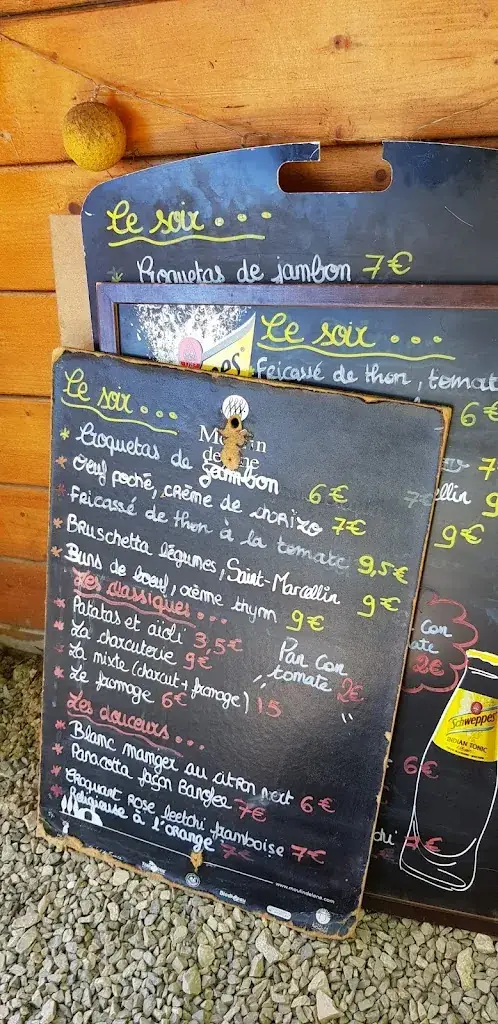 Le soir . . .
Croquetas de jambon 7€
Le soir . . .
Feicassé de thon, tomat
6€
7
ellin 9
9€
Con
ate
2€
Schweppes
INDIAN TONIC
6€
chi 7€
Le soir . . .
Croquetas de jambon 6€
Oeuf poché, crème de chorizo 7€
Feicassé de thon à la tomate 9,5€
Bruschetta légumes, Saint-Marcellin 9€
Buns de boeuf, crème thym 9€
Les classiques . . .
Patatas et aïoli 3,5€
La charcuterie 9€
Pan con tomate 2€
La mixte (charcut + fromage) 15
Le fromage 6€
Les douceurs . . .
Blanc manger au citron vert 6€
Panacotta façon Banoffee 7€
Croquant rose leetchi framboise 7€
Religieuse à l'orange 7€
www.moulindelene.com